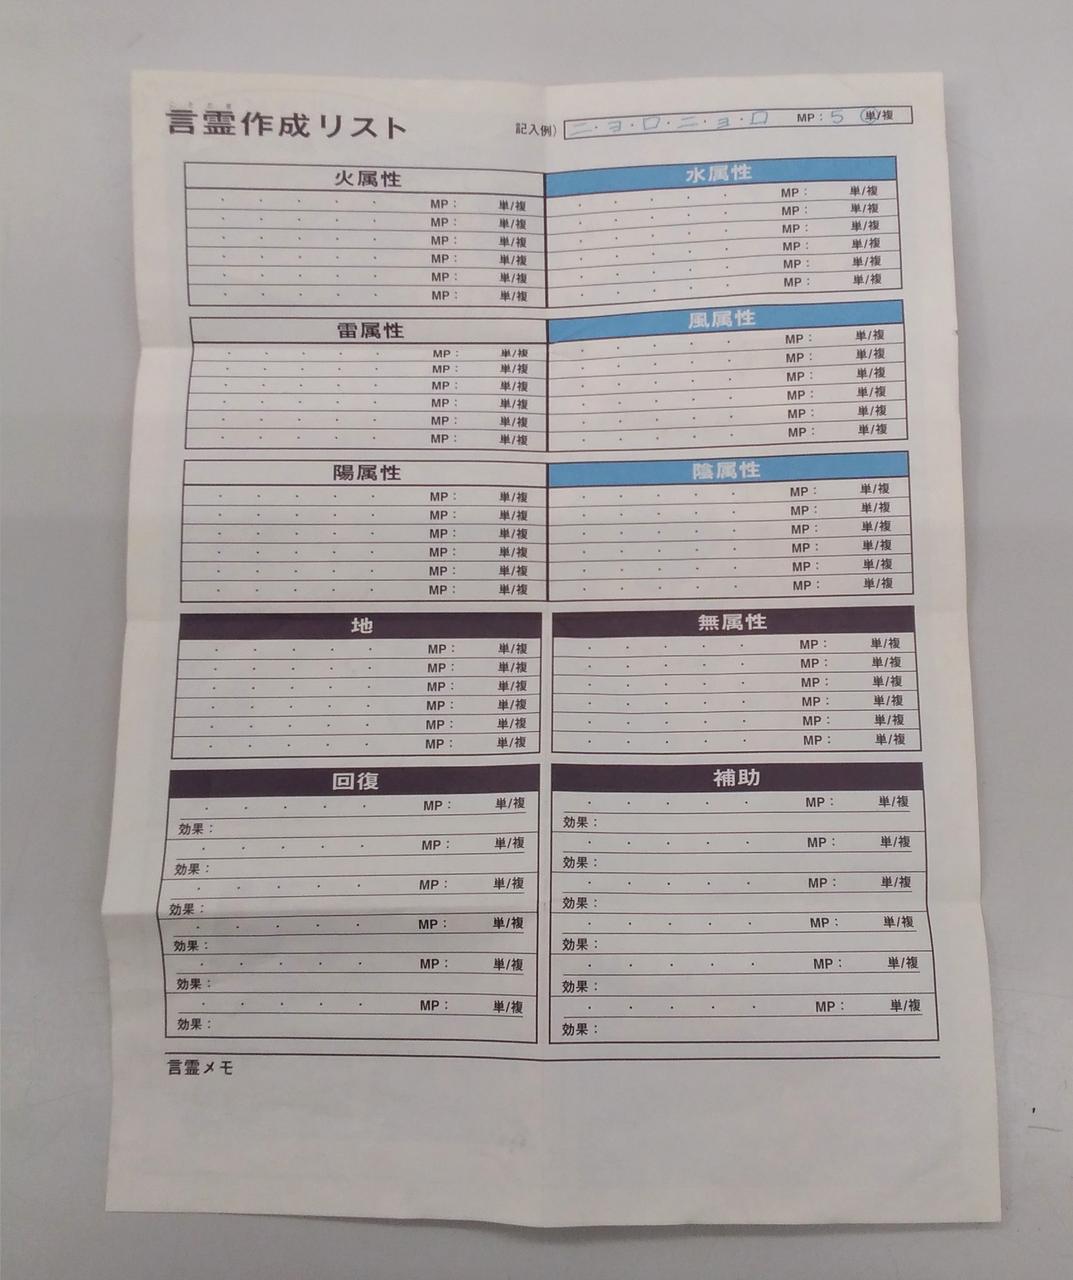 ことだま
言霊作成リスト
記入例) ニ・ョ・ロ・ニ・ョ・ロ MP：5 単/複
火属性
・ ・ ・ ・ ・ MP： 単/複
・ ・ ・ ・ ・ MP： 単/複
・ ・ ・ ・ ・ MP： 単/複
・ ・ ・ ・ ・ MP： 単/複
・ ・ ・ ・ ・ MP： 単/複
・ ・ ・ ・ ・ MP： 単/複
水属性
・ ・ ・ ・ ・ MP： 単/複
・ ・ ・ ・ ・ MP： 単/複
・ ・ ・ ・ ・ MP： 単/複
・ ・ ・ ・ ・ MP： 単/複
・ ・ ・ ・ ・ MP： 単/複
・ ・ ・ ・ ・ MP： 単/複
雷属性
・ ・ ・ ・ ・ MP： 単/複
・ ・ ・ ・ ・ MP： 単/複
・ ・ ・ ・ ・ MP： 単/複
・ ・ ・ ・ ・ MP： 単/複
・ ・ ・ ・ ・ MP： 単/複
・ ・ ・ ・ ・ MP： 単/複
風属性
・ ・ ・ ・ ・ MP： 単/複
・ ・ ・ ・ ・ MP： 単/複
・ ・ ・ ・ ・ MP： 単/複
・ ・ ・ ・ ・ MP： 単/複
・ ・ ・ ・ ・ MP： 単/複
・ ・ ・ ・ ・ MP： 単/複
陽属性
・ ・ ・ ・ ・ MP： 単/複
・ ・ ・ ・ ・ MP： 単/複
・ ・ ・ ・ ・ MP： 単/複
・ ・ ・ ・ ・ MP： 単/複
・ ・ ・ ・ ・ MP： 単/複
・ ・ ・ ・ ・ MP： 単/複
陰属性
・ ・ ・ ・ ・ MP： 単/複
・ ・ ・ ・ ・ MP： 単/複
・ ・ ・ ・ ・ MP： 単/複
・ ・ ・ ・ ・ MP： 単/複
・ ・ ・ ・ ・ MP： 単/複
・ ・ ・ ・ ・ MP： 単/複
地
・ ・ ・ ・ ・ MP： 単/複
・ ・ ・ ・ ・ MP： 単/複
・ ・ ・ ・ ・ MP： 単/複
・ ・ ・ ・ ・ MP： 単/複
・ ・ ・ ・ ・ MP： 単/複
・ ・ ・ ・ ・ MP： 単/複
無属性
・ ・ ・ ・ ・ MP： 単/複
・ ・ ・ ・ ・ MP： 単/複
・ ・ ・ ・ ・ MP： 単/複
・ ・ ・ ・ ・ MP： 単/複
・ ・ ・ ・ ・ MP： 単/複
・ ・ ・ ・ ・ MP： 単/複
回復
・ ・ ・ ・ ・ MP： 単/複
効果：
・ ・ ・ ・ ・ MP： 単/複
効果：
・ ・ ・ ・ ・ MP： 単/複
効果：
・ ・ ・ ・ ・ MP： 単/複
効果：
・ ・ ・ ・ ・ MP： 単/複
効果：
・ ・ ・ ・ ・ MP： 単/複
効果：
補助
・ ・ ・ ・ ・ MP： 単/複
効果：
・ ・ ・ ・ ・ MP： 単/複
効果：
・ ・ ・ ・ ・ MP： 単/複
効果：
・ ・ ・ ・ ・ MP： 単/複
効果：
・ ・ ・ ・ ・ MP： 単/複
効果：
・ ・ ・ ・ ・ MP： 単/複
効果：
言霊メモ